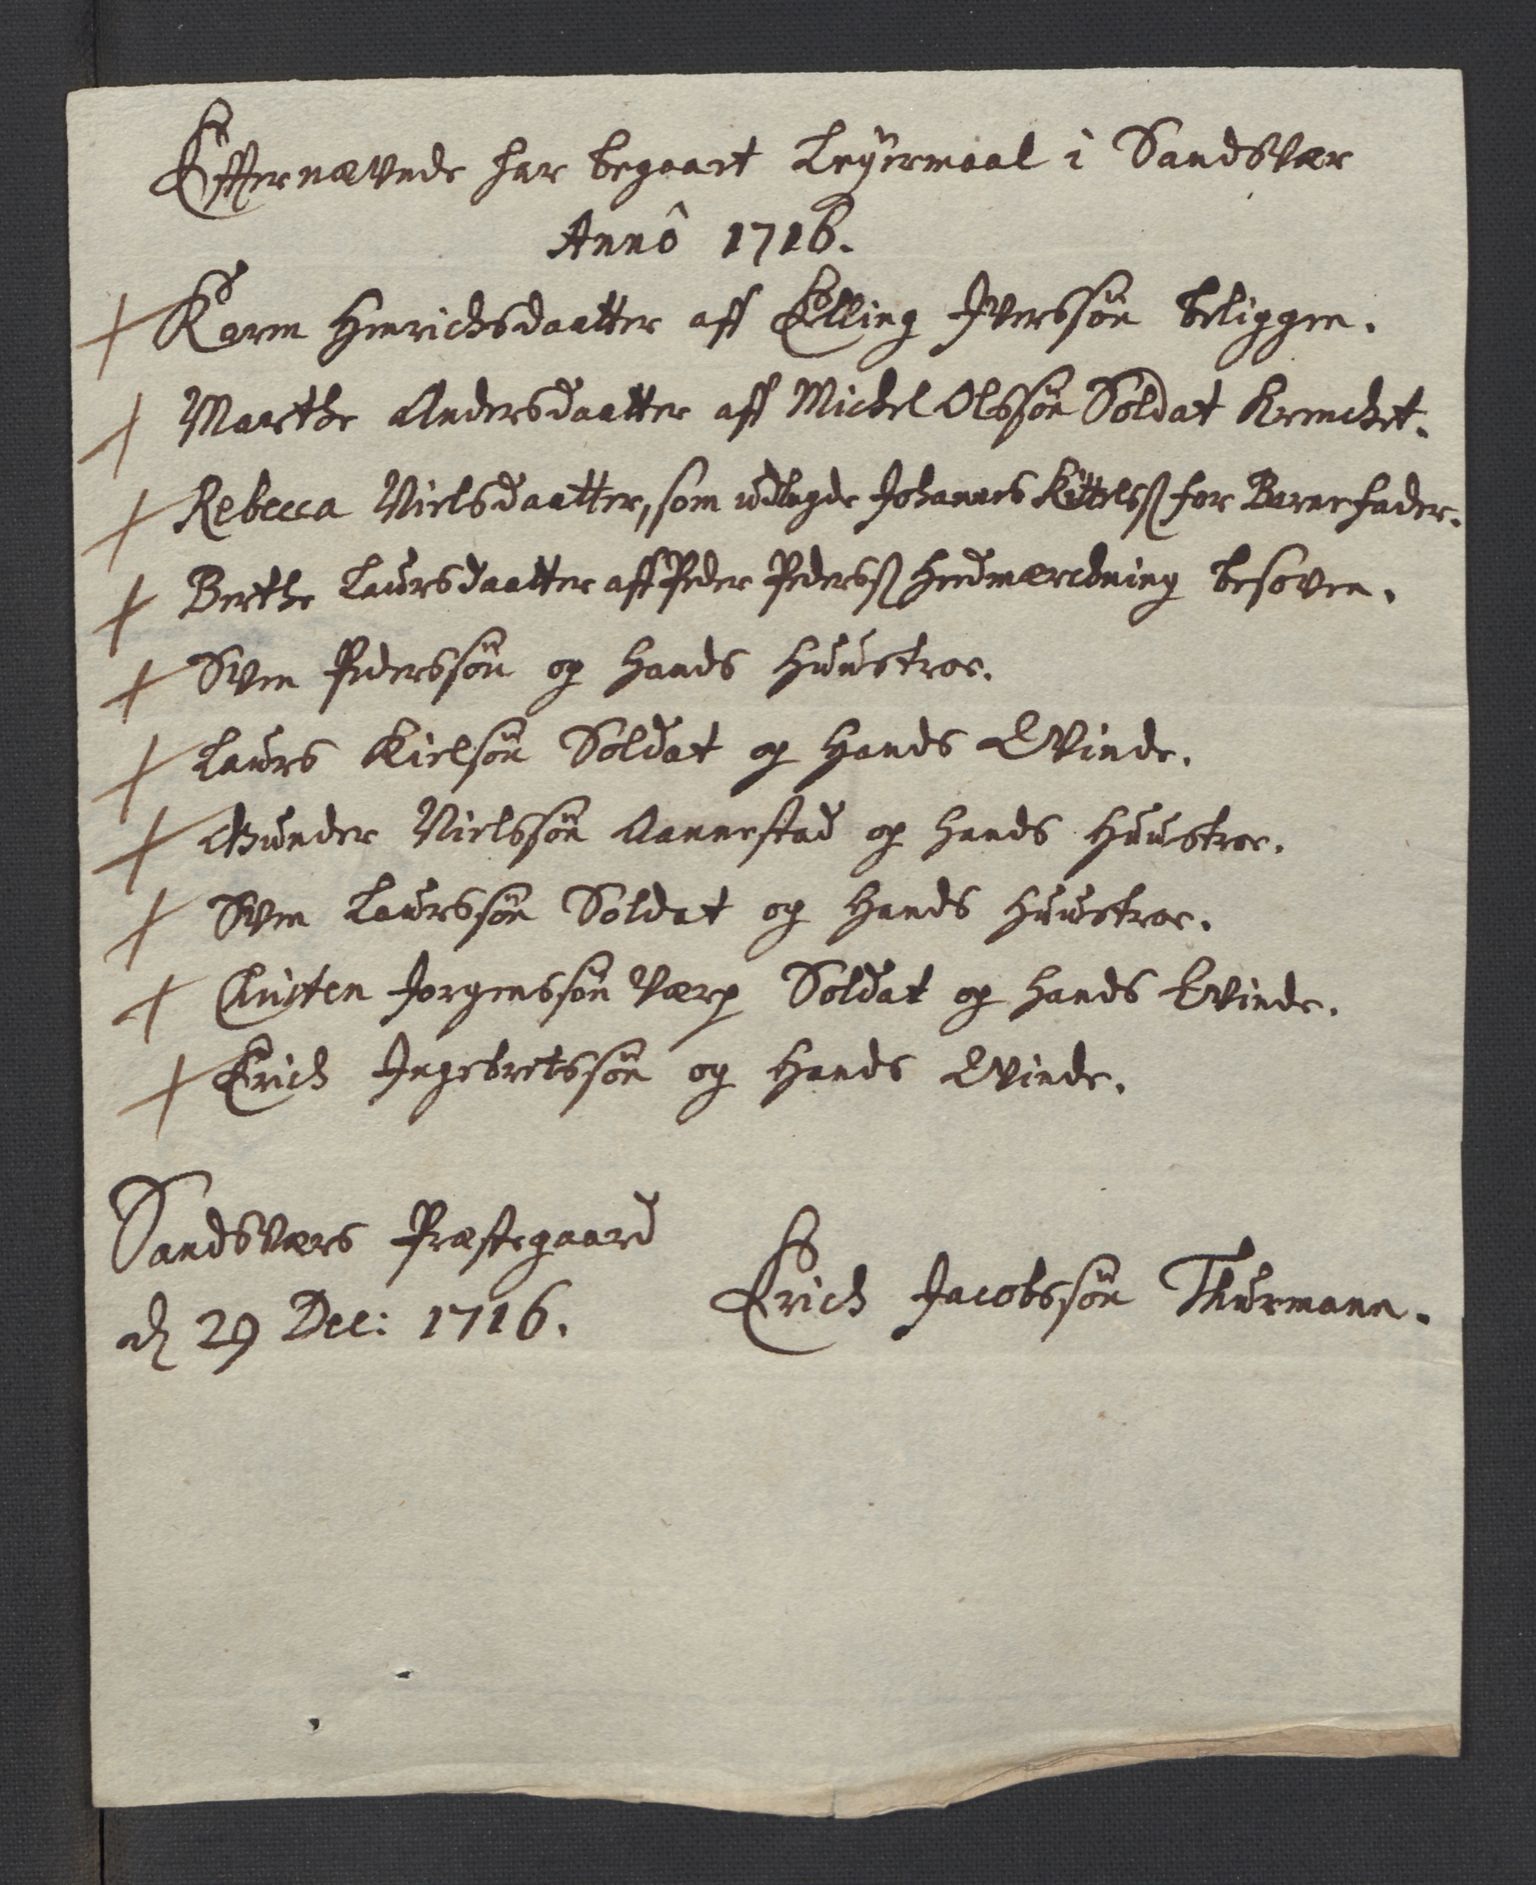 Effternævnde har begaaet Leyermaal i Sandsvær
Annô 1716.
Karen Henrichsdaatter aff Elling Iverssøn beliggen.
Marthe Andersdaatter aff Michel Olssøn Soldat krencket.
Rebecca Nielsdaatter, som udlagde Johannes Kittelsß for Barnefader.
Berthe Laursdaatter aff Peder Pedersß Hedmærckning besoven.
Sven Pederssøn og hands Huustroe.
Laurs Kielsøn Soldat og hands Qvinde.
Gunder Nielssøn Aannestad og hands Huustroe.
Sven Laurssøn Soldat og hands Huustroe.
Christen Jorgenssøn Værp Soldat og hands Qvinde.
Erich Ingebretssøn og hands Qvinde.
Sandsværs Præstegaard
d 29 Dec: 1716.
Erich Jacobssøn Thurmann.